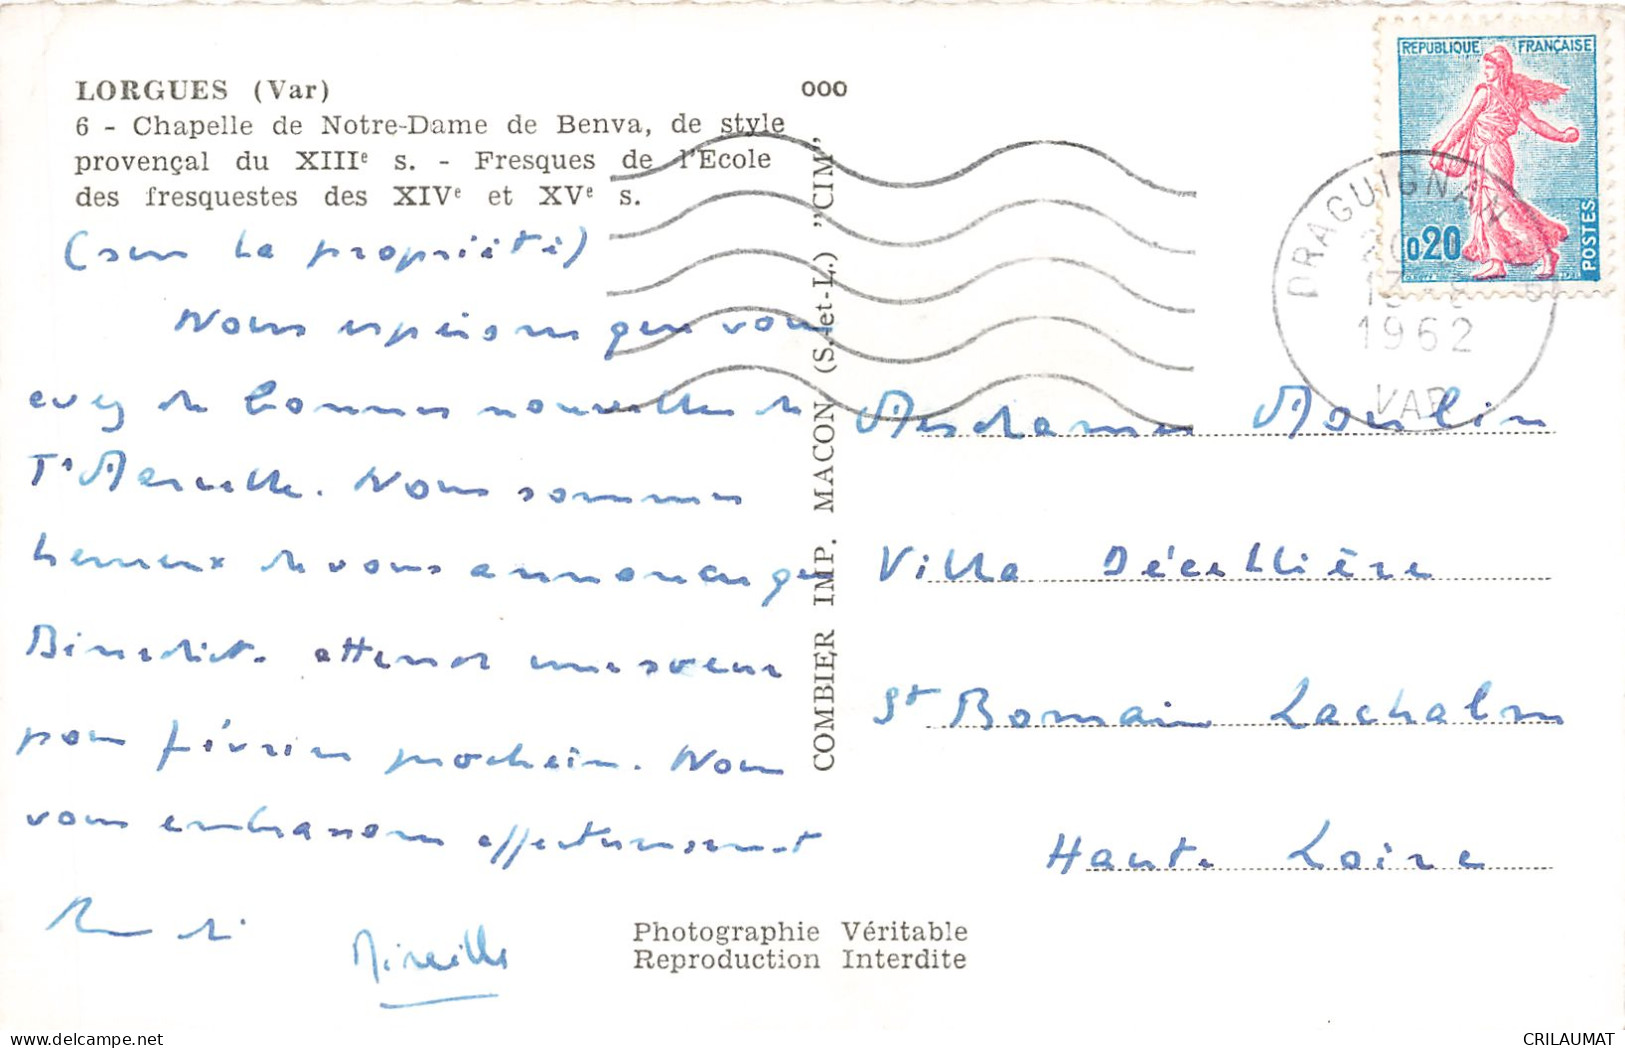 LORGUES (Var)
6 - Chapelle de Notre-Dame de Benva, de style
provençal du XIIIe s. - Fresques de l'Ecole
des fresquestes des XIVe et XVe s.
(sur la propriété)
Nous espérons que vous
avez de bonnes nouvelles de
Te Marcelle. Nous sommes
heureux de vous annoncer que
Bénédicte attend une soeur
pour février prochain. Nous
vous embrassons affectueusement
Mireille
OOO
COMBIER IMP. MACON (S.-et-L.) "CIM"
REPUBLIQUE FRANÇAISE
0,20
POSTES
DRAGUIGNAN
1962
VAR
Mesdames Moulin
Villa Décellière
St Romain Lachalm
Haute Loire
Photographie Véritable
Reproduction Interdite
CRILAUMAT